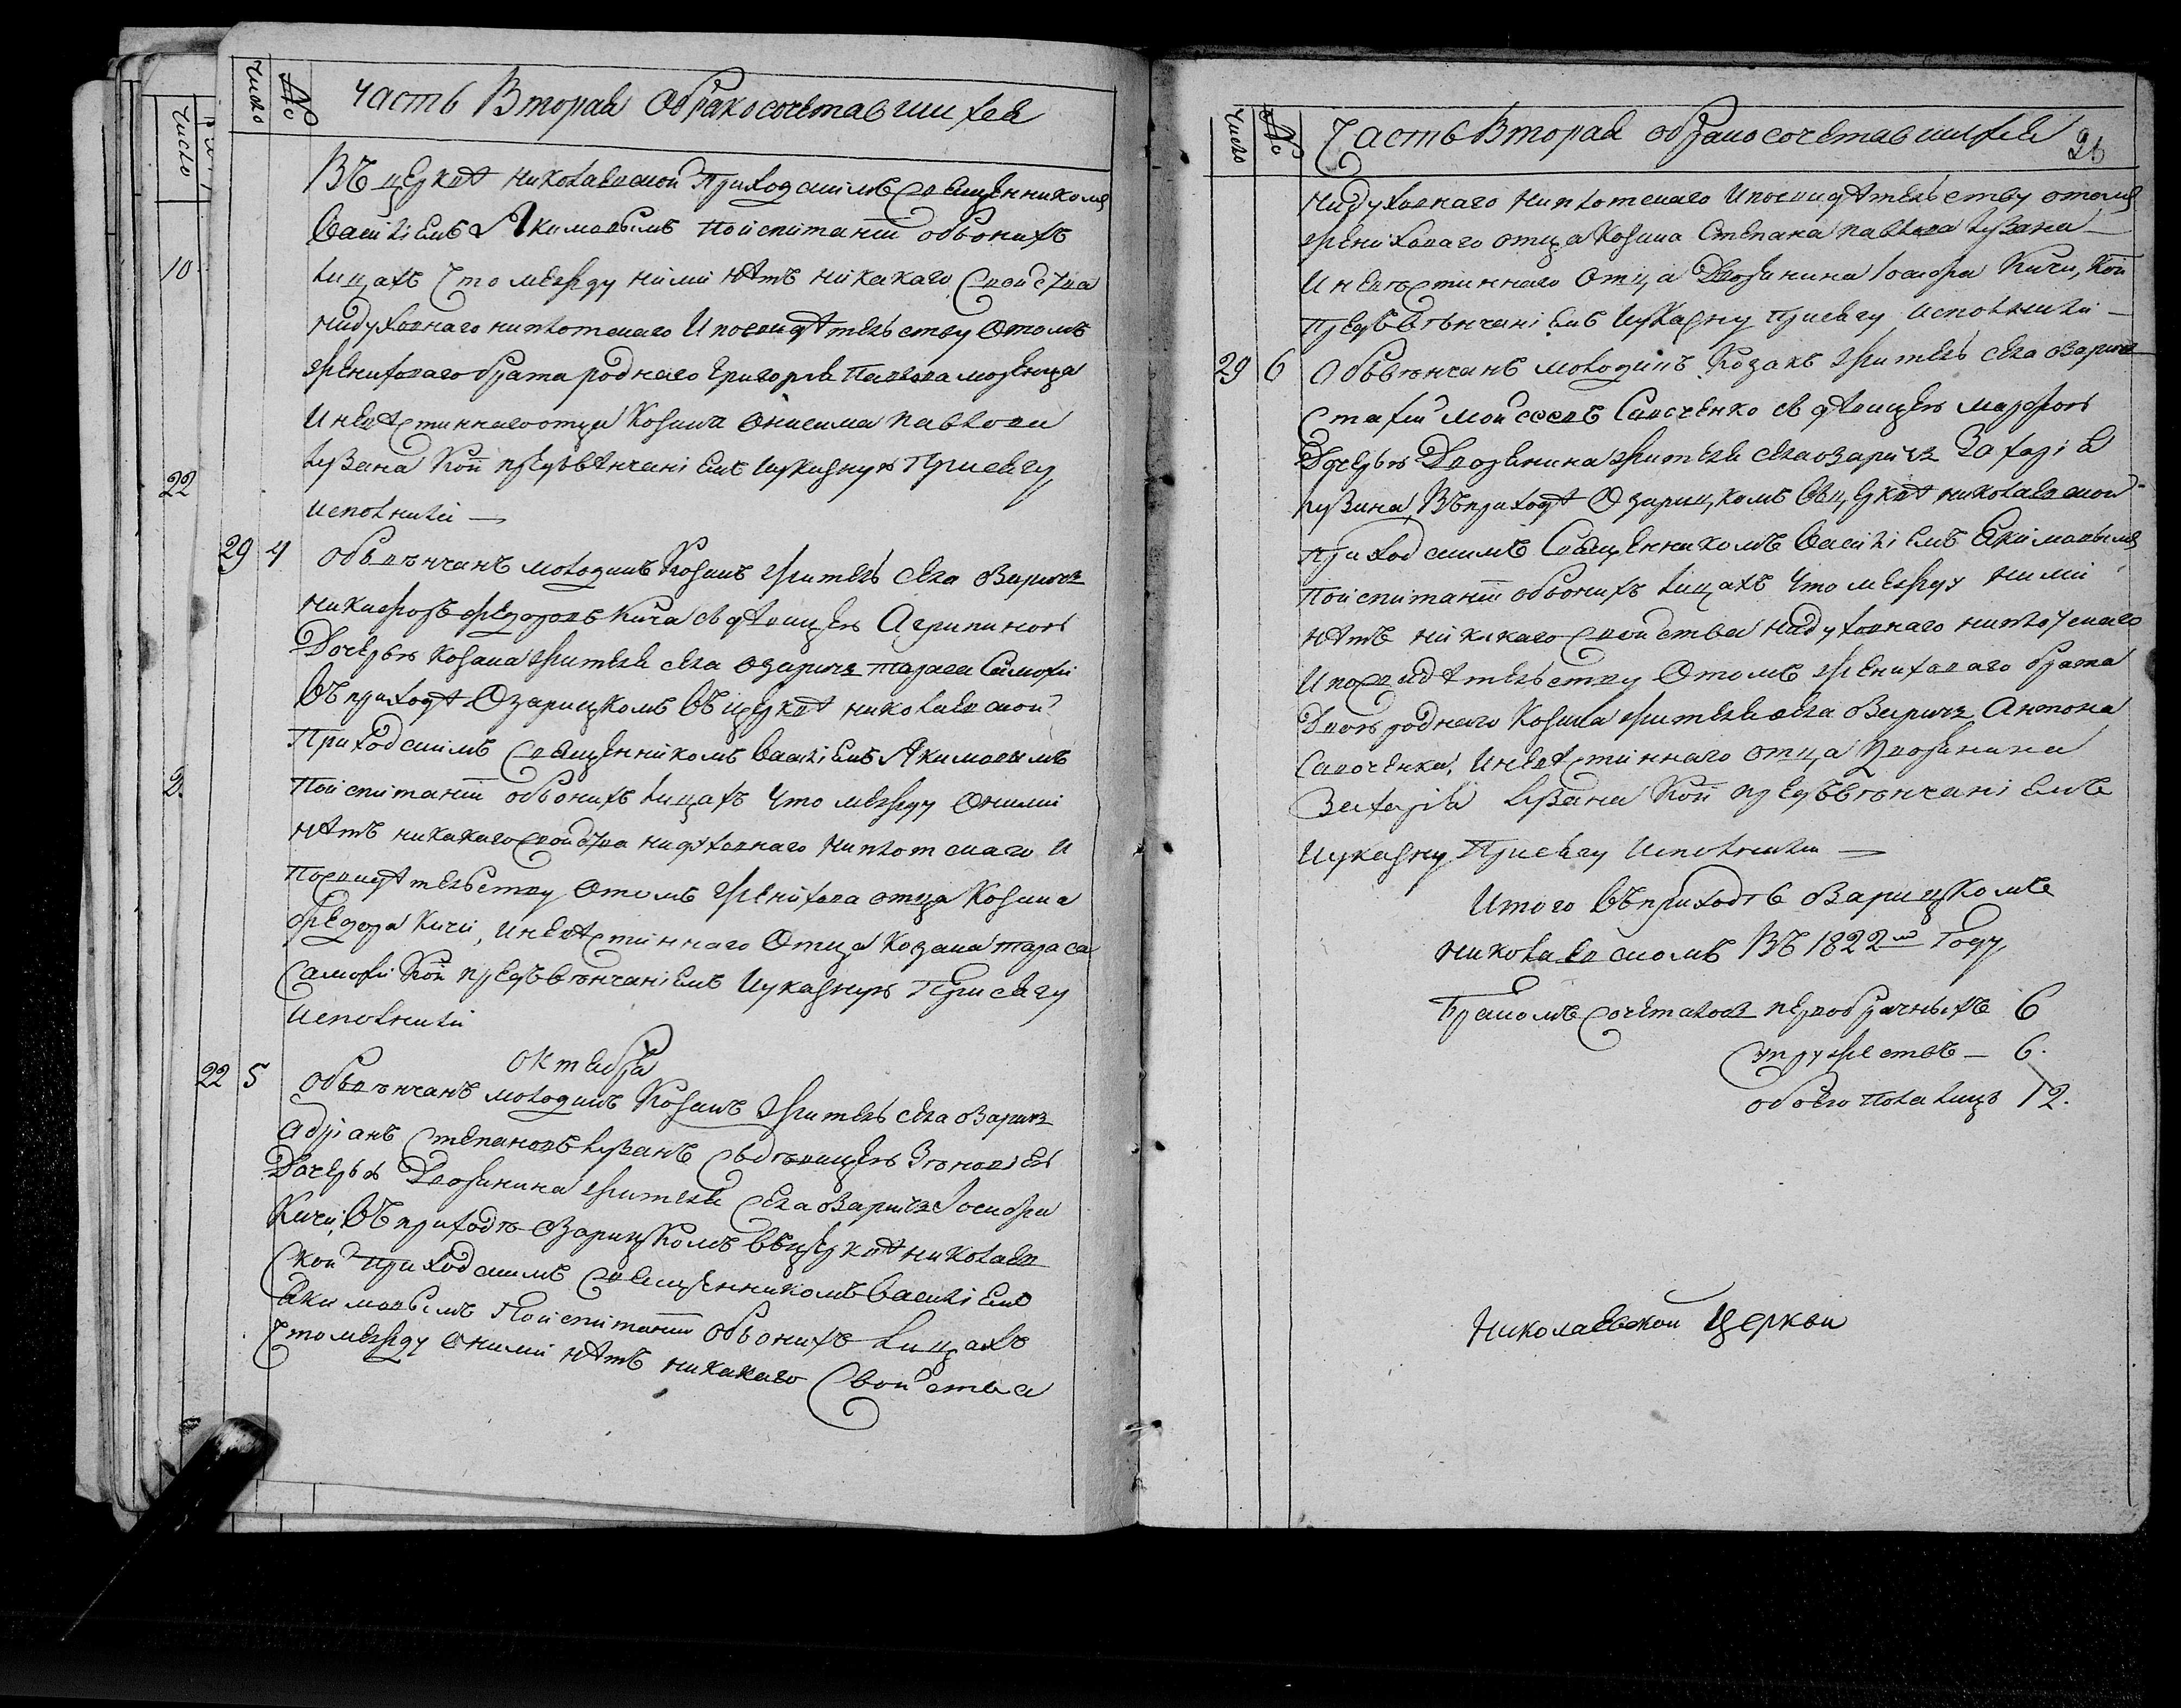 Число
№
Часть Вторая Обракосочетавшихся
Въ церквѣ николаевской Приходскимъ Священникомъ
Василіемъ Якимовымъ поиспитаніи обьонихъ
лицахъ что между ними нѣтъ никакаго свойства
нидуховнаго ниплотскаго Ипосвидѣтельству отомъ
жениховаго брата роднаго Григорія Павлова
Иневѣстиннаго отца Козака Онисима Павлова
Лузана кои предъвѣнчаніемъ Иуказную Присягу
исполнили —
29 4 Обвѣнчанъ молодикъ Козакъ житель села Озаричъ
никифоръ федоровъ Кича сдѣвицею Агрипиною
Дочерью козака жителя села озаричъ тараса Самохи
Въприходѣ Озарицкомъ Въ церквѣ николаевской
Приходскимъ Священникомъ Василіемъ Якимовымъ
Поиспитаніи обьонихъ лицахъ что между Оними
нѣтъ никакаго свойства нидуховнаго ниплотскаго И
Посвидѣтельству Отомъ женихова отца Козака
федора Кичи, Иневѣстиннаго Отца Козака тараса
Самохи кои предъвѣнчаніемъ Иуказную Присягу
исполнили
Октября
22 5 Обвѣнчанъ молодикъ Козакъ житель села Озаричъ
Адріанъ Степановъ лузанъ Сьдѣвицею Зѣновіею
Дочерью Дворянина жителя Села Озаричъ Іосифа
Кичи, Въприходѣ Озарицкомъ Вьцерквѣ николаев
ской приходскимъ Священникомъ Василіемъ
Якимовымъ Поиспитаніи Обьонихъ лицахъ
Что между Оними нѣтъ никакаго Свойства
Число
10
22
2
Число
№
Часть Вторая обракосочетавшихся 26
нидуховнаго ниплотскаго Ипосвидѣтельству отомъ
жениховаго отца Козака Степана Павлова лузана —
Иневѣстиннаго Отца Дворянина Іосифа Кичи, Кои
предъвѣнчаніемъ Иуказну присягу исполнили —
29 6 Обьвѣнчанъ молодикъ Козакъ житель села Озаричъ
Стахій Мойсеевъ Савченко сьдѣвицею Марфою
Дочерью Дворянина жителя села озаричъ Захарія
лузана, Въприходѣ Озарицкомъ Вьцерквѣ николаевской
приходскимъ Священникомъ Василіемъ Якимовымъ
Поиспитаніи обьонихъ лицахъ Что между ними
нѣтъ никакаго свойства нидуховнаго ниплотскаго
Ипосвидѣтельству Отомъ жениховаго брата
Двоюроднаго Козака жителя села Озаричъ Антона
Савоченка, Иневѣстиннаго отца Дворянина
Захарія Лузана Кои предъвѣнчаніемъ
Иуказну Присягу исполнили —
Итого Въприходѣ Озарицкомъ
николаевскомъ ВЪ 1822м Году
Бракомъ Сочеталось первобрачныхъ 6
Супружествъ — 6.
обоего пола лицъ 12.
Николаевской Церкви